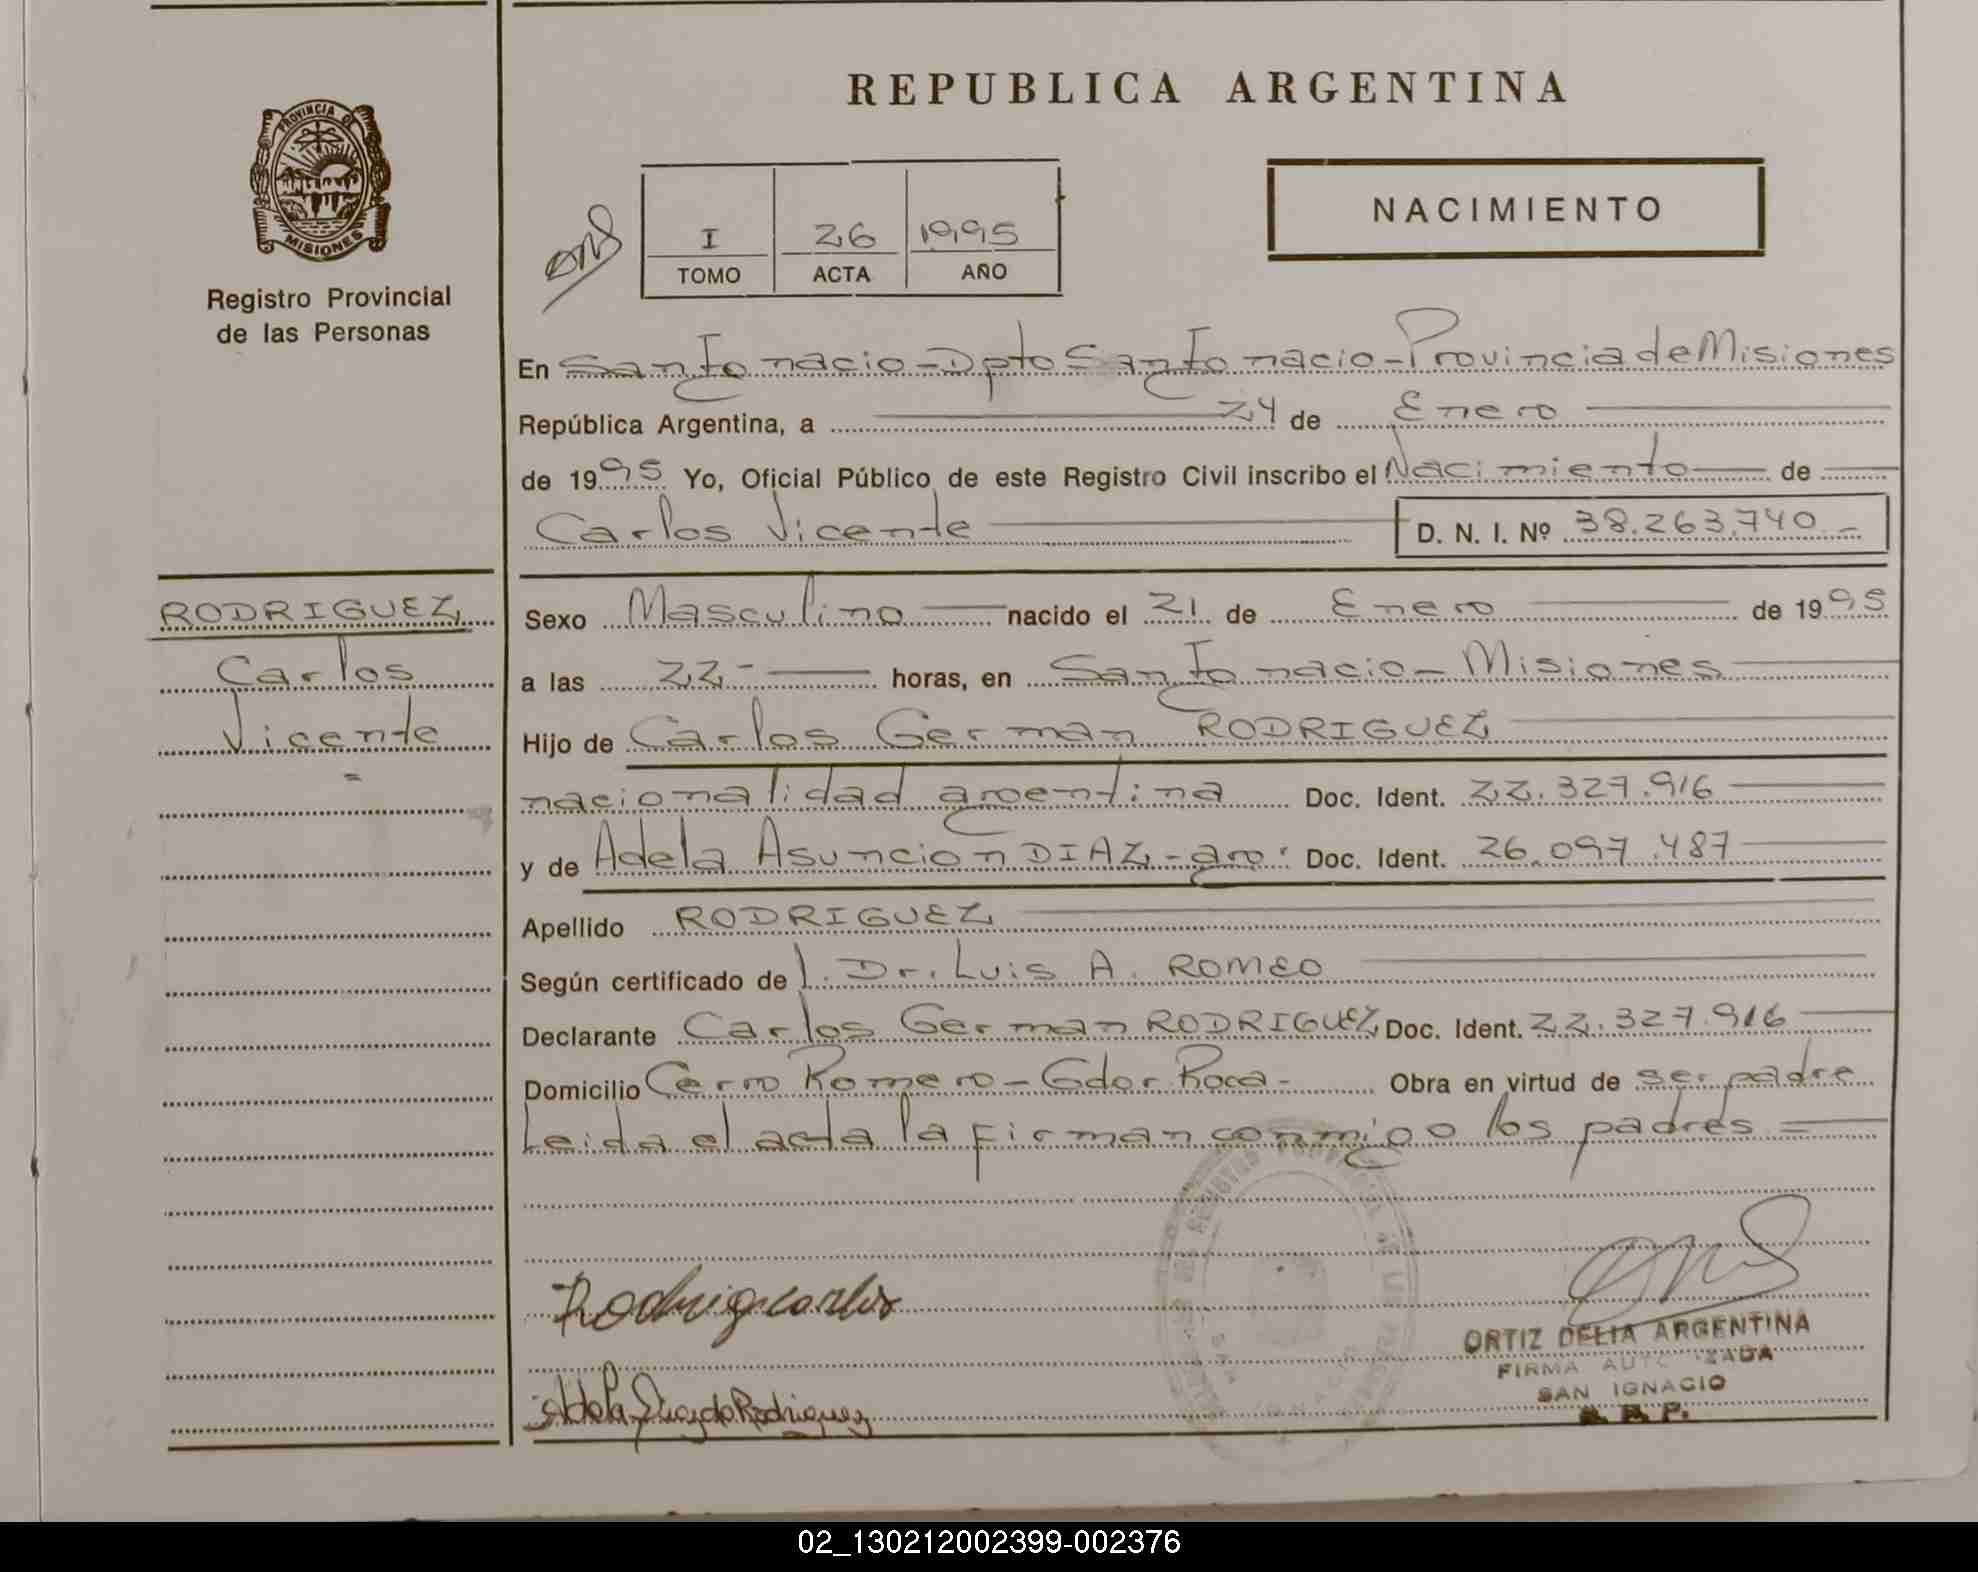 REPUBLICA ARGENTINA
PROVINCIA DE
MISIONES
Registro Provincial
de las Personas
I 26 1995
TOMO ACTA AÑO
NACIMIENTO
En San Ignacio - Dpto San Ignacio - Provincia de Misiones
República Argentina, a 24 de Enero
de 1995 Yo, Oficial Público de este Registro Civil inscribo el Nacimiento de
Carlos Vicente D. N. I. Nº 38.263.740 -
RODRIGUEZ
Carlos
Vicente
=
Sexo Masculino nacido el 21 de Enero de 1995
a las 22- horas, en San Ignacio - Misiones
Hijo de Carlos German RODRIGUEZ
nacionalidad argentina Doc. Ident. 22.327.916
y de Adela Asuncion DIAZ - arg. Doc. Ident. 26.097.487
Apellido RODRIGUEZ
Según certificado de l. Dr. Luis A. ROMEO
Declarante Carlos German RODRIGUEZ Doc. Ident. 22.327.916
Domicilio Cerro Romero - Gdor Roca - Obra en virtud de ser padre
Leida el acta la firman conmigo los padres =
ORTIZ DELIA ARGENTINA
FIRMA AUTORIZADA
SAN IGNACIO
R. P. P.
02_130212002399-002376